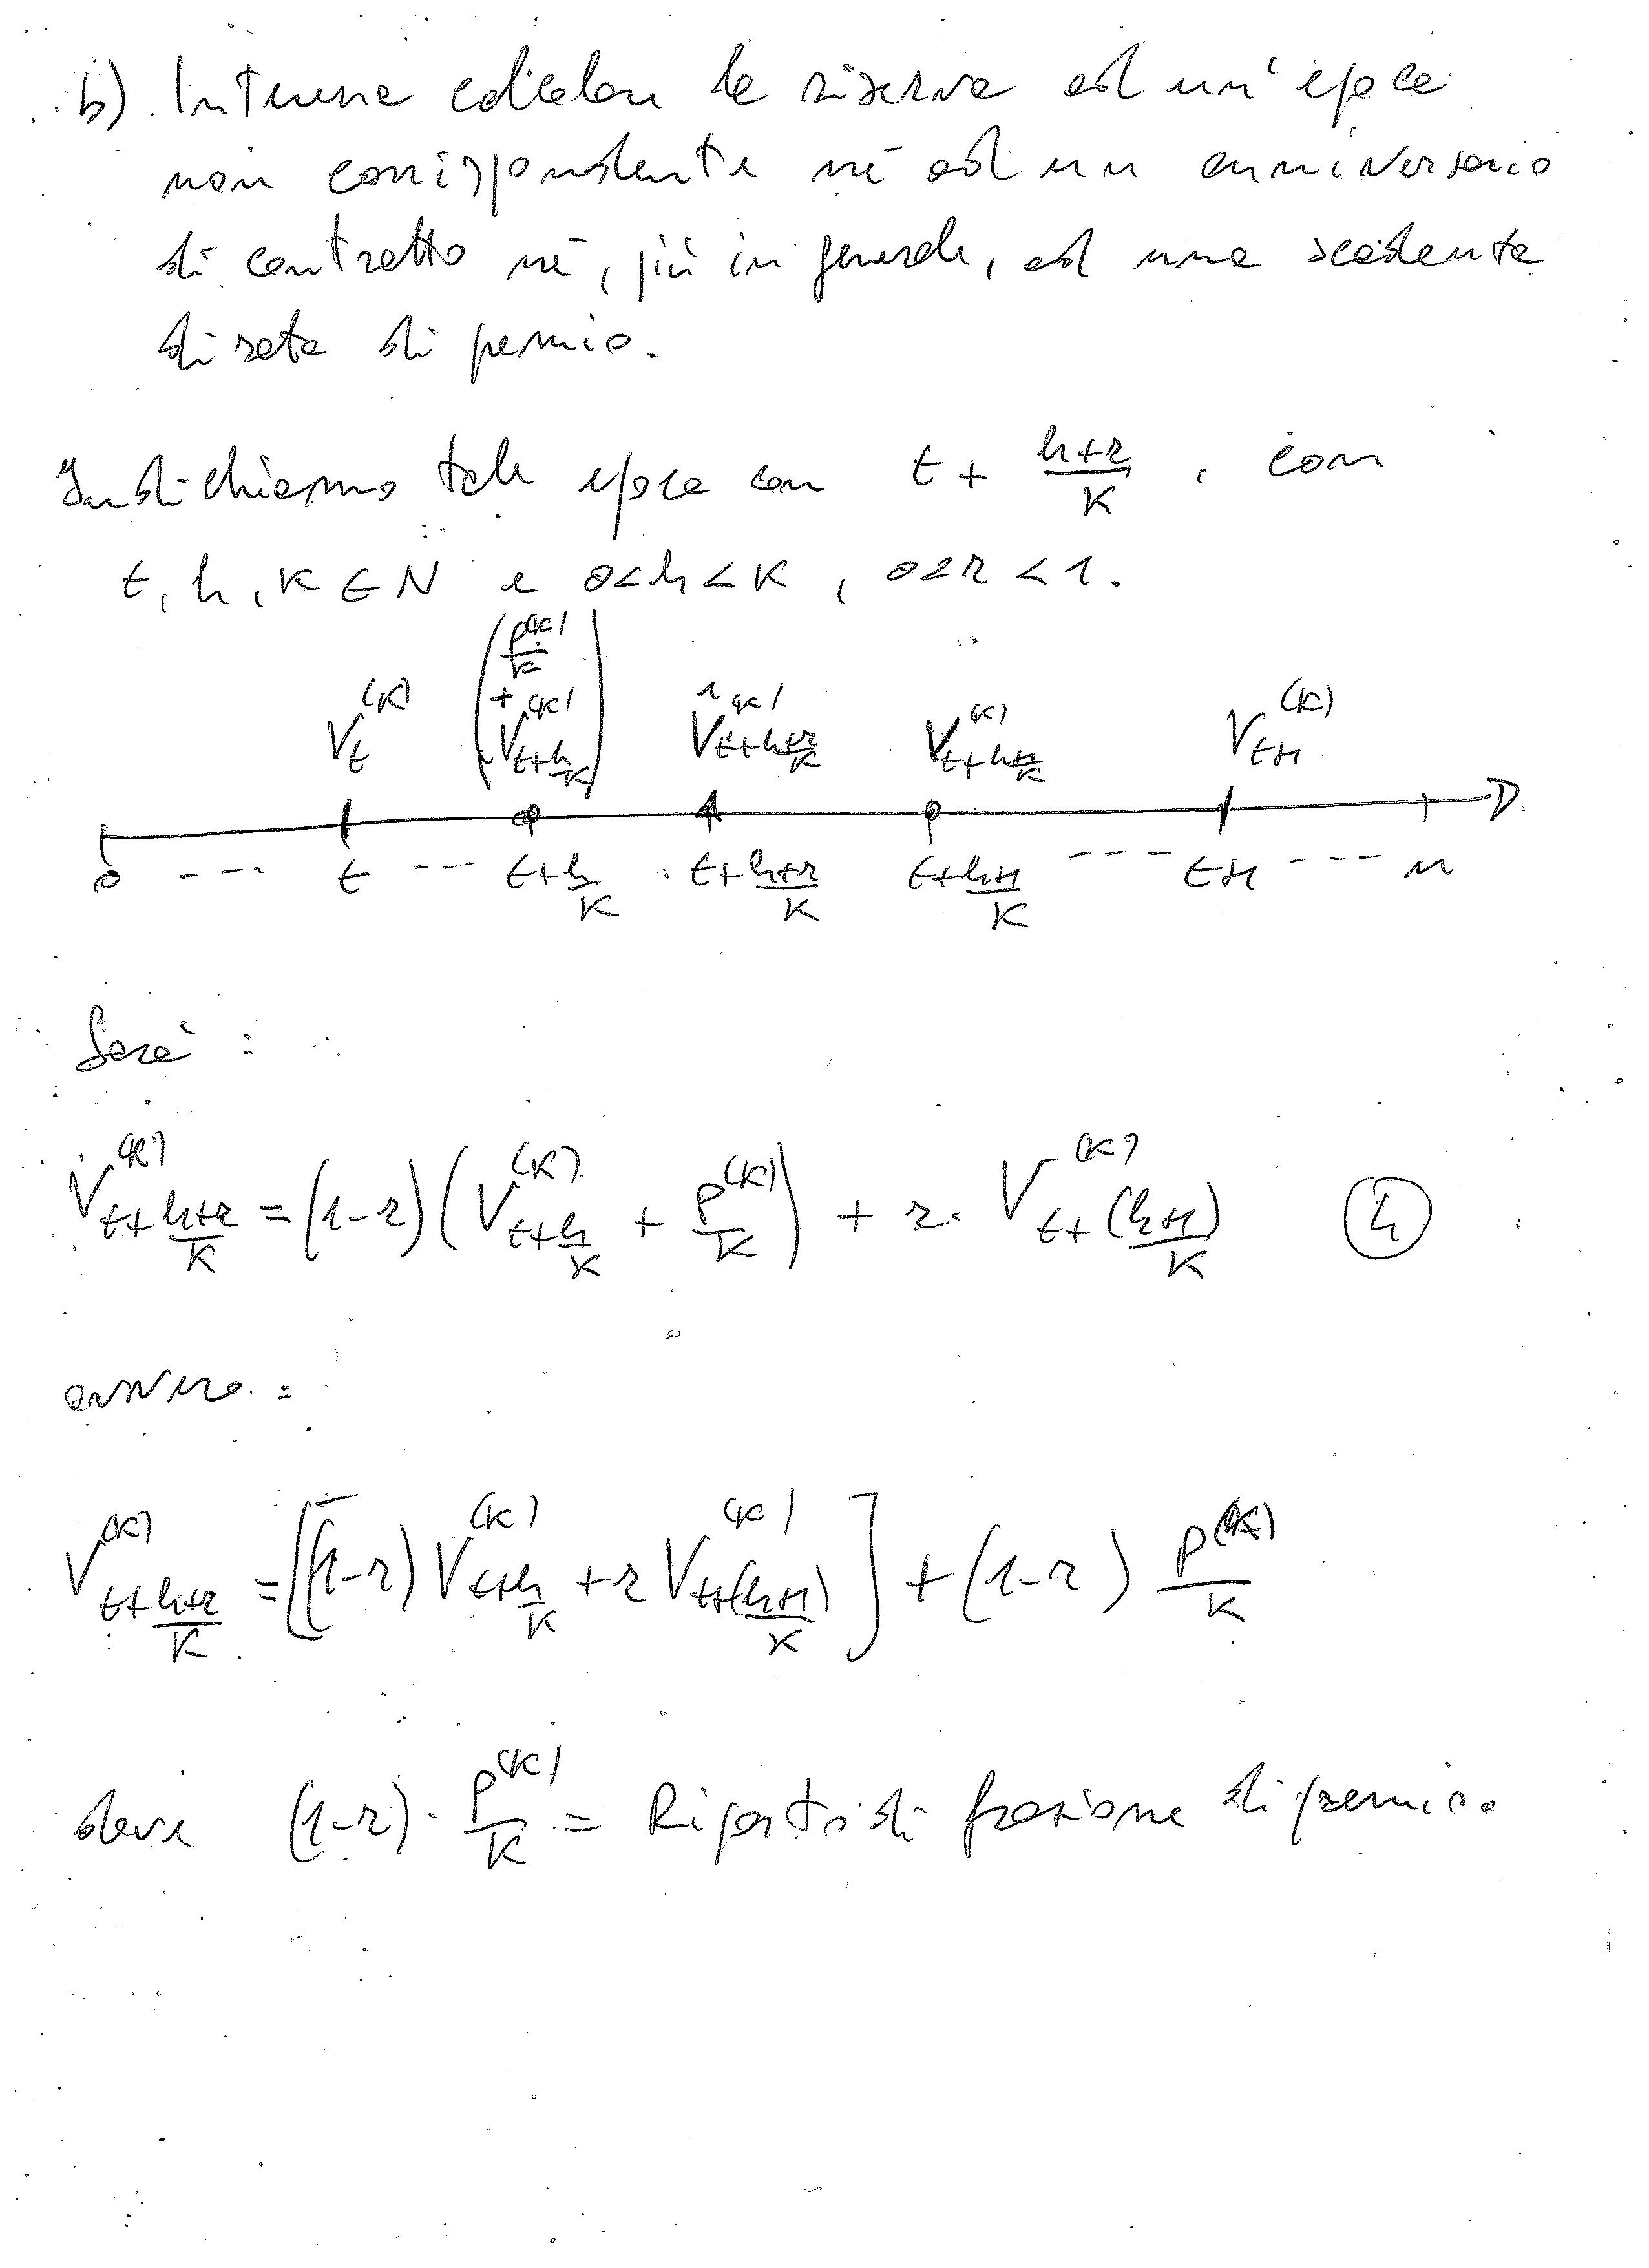 b) Interessa calcolare la riserva ad un'epoca
non corrispondente né ad un anniversario
di contratto né, più in generale, ad una scadenza
di rata di premio.
Indichiamo tale epoca con t + (h+r)/K , con
t, h, K ∈ N e 0<h<K , 0<r<1.
(P^(K)/K + V^(K)_{t+h/K})
V_t^(K) V^(K)_{t+(h+r)/K} V^(K)_{t+(h+1)/K} V_{t+1}^(K)
0 --- t --- t+h/K t+(h+r)/K t+(h+1)/K --- t+1 --- n
Sarà :
V^(K)_{t+(h+r)/K} = (1-r)(V^(K)_{t+h/K} + P^(K)/K) + r · V^(K)_{t+(h+1)/K} (4)
ovvero :
V^(K)_{t+(h+r)/K} = [(1-r) V^(K)_{t+h/K} + r V^(K)_{t+(h+1)/K}] + (1-r) P^(K)/K
dove (1-r) · P^(K)/K = Riporto di frazione di premio.